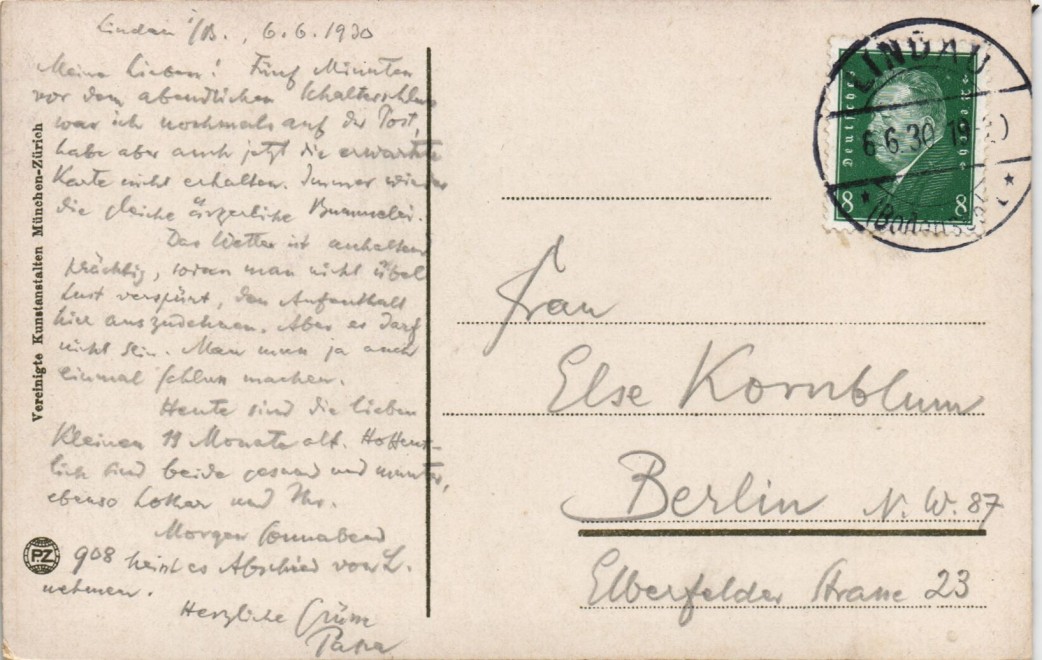 Lindau i/B., 6.6.1930
Meine Lieben! Fünf Minuten
vor dem abendlichen Schalterschluss
war ich nochmals auf der Post,
habe aber auch jetzt die erwartete
Karte nicht erhalten. Immer wieder
die gleiche ärgerliche Bummelei.
Das Wetter ist anhaltend
prächtig, sodass man nicht übel
Lust verspürt, den Aufenthalt
hier auszudehnen. Aber es darf
nicht sein. Man muss ja auch
einmal Schluss machen.
Heute sind die lieben
Kleinen 11 Monate alt. Hoffent-
lich sind beide gesund und munter,
ebenso Lothar und Ihr.
Morgen Sonnabend
908 heisst es Abschied von L.
nehmen.
Herzliche Grüsse
Papa
Vereinigte Kunstanstalten München-Zürich
PZ
Deutsches Reich
8 8
LINDAU
6.6.30 19
(Bodensee)
Frau
Else Kornblum
Berlin N.W. 87
Elberfelder Strasse 23